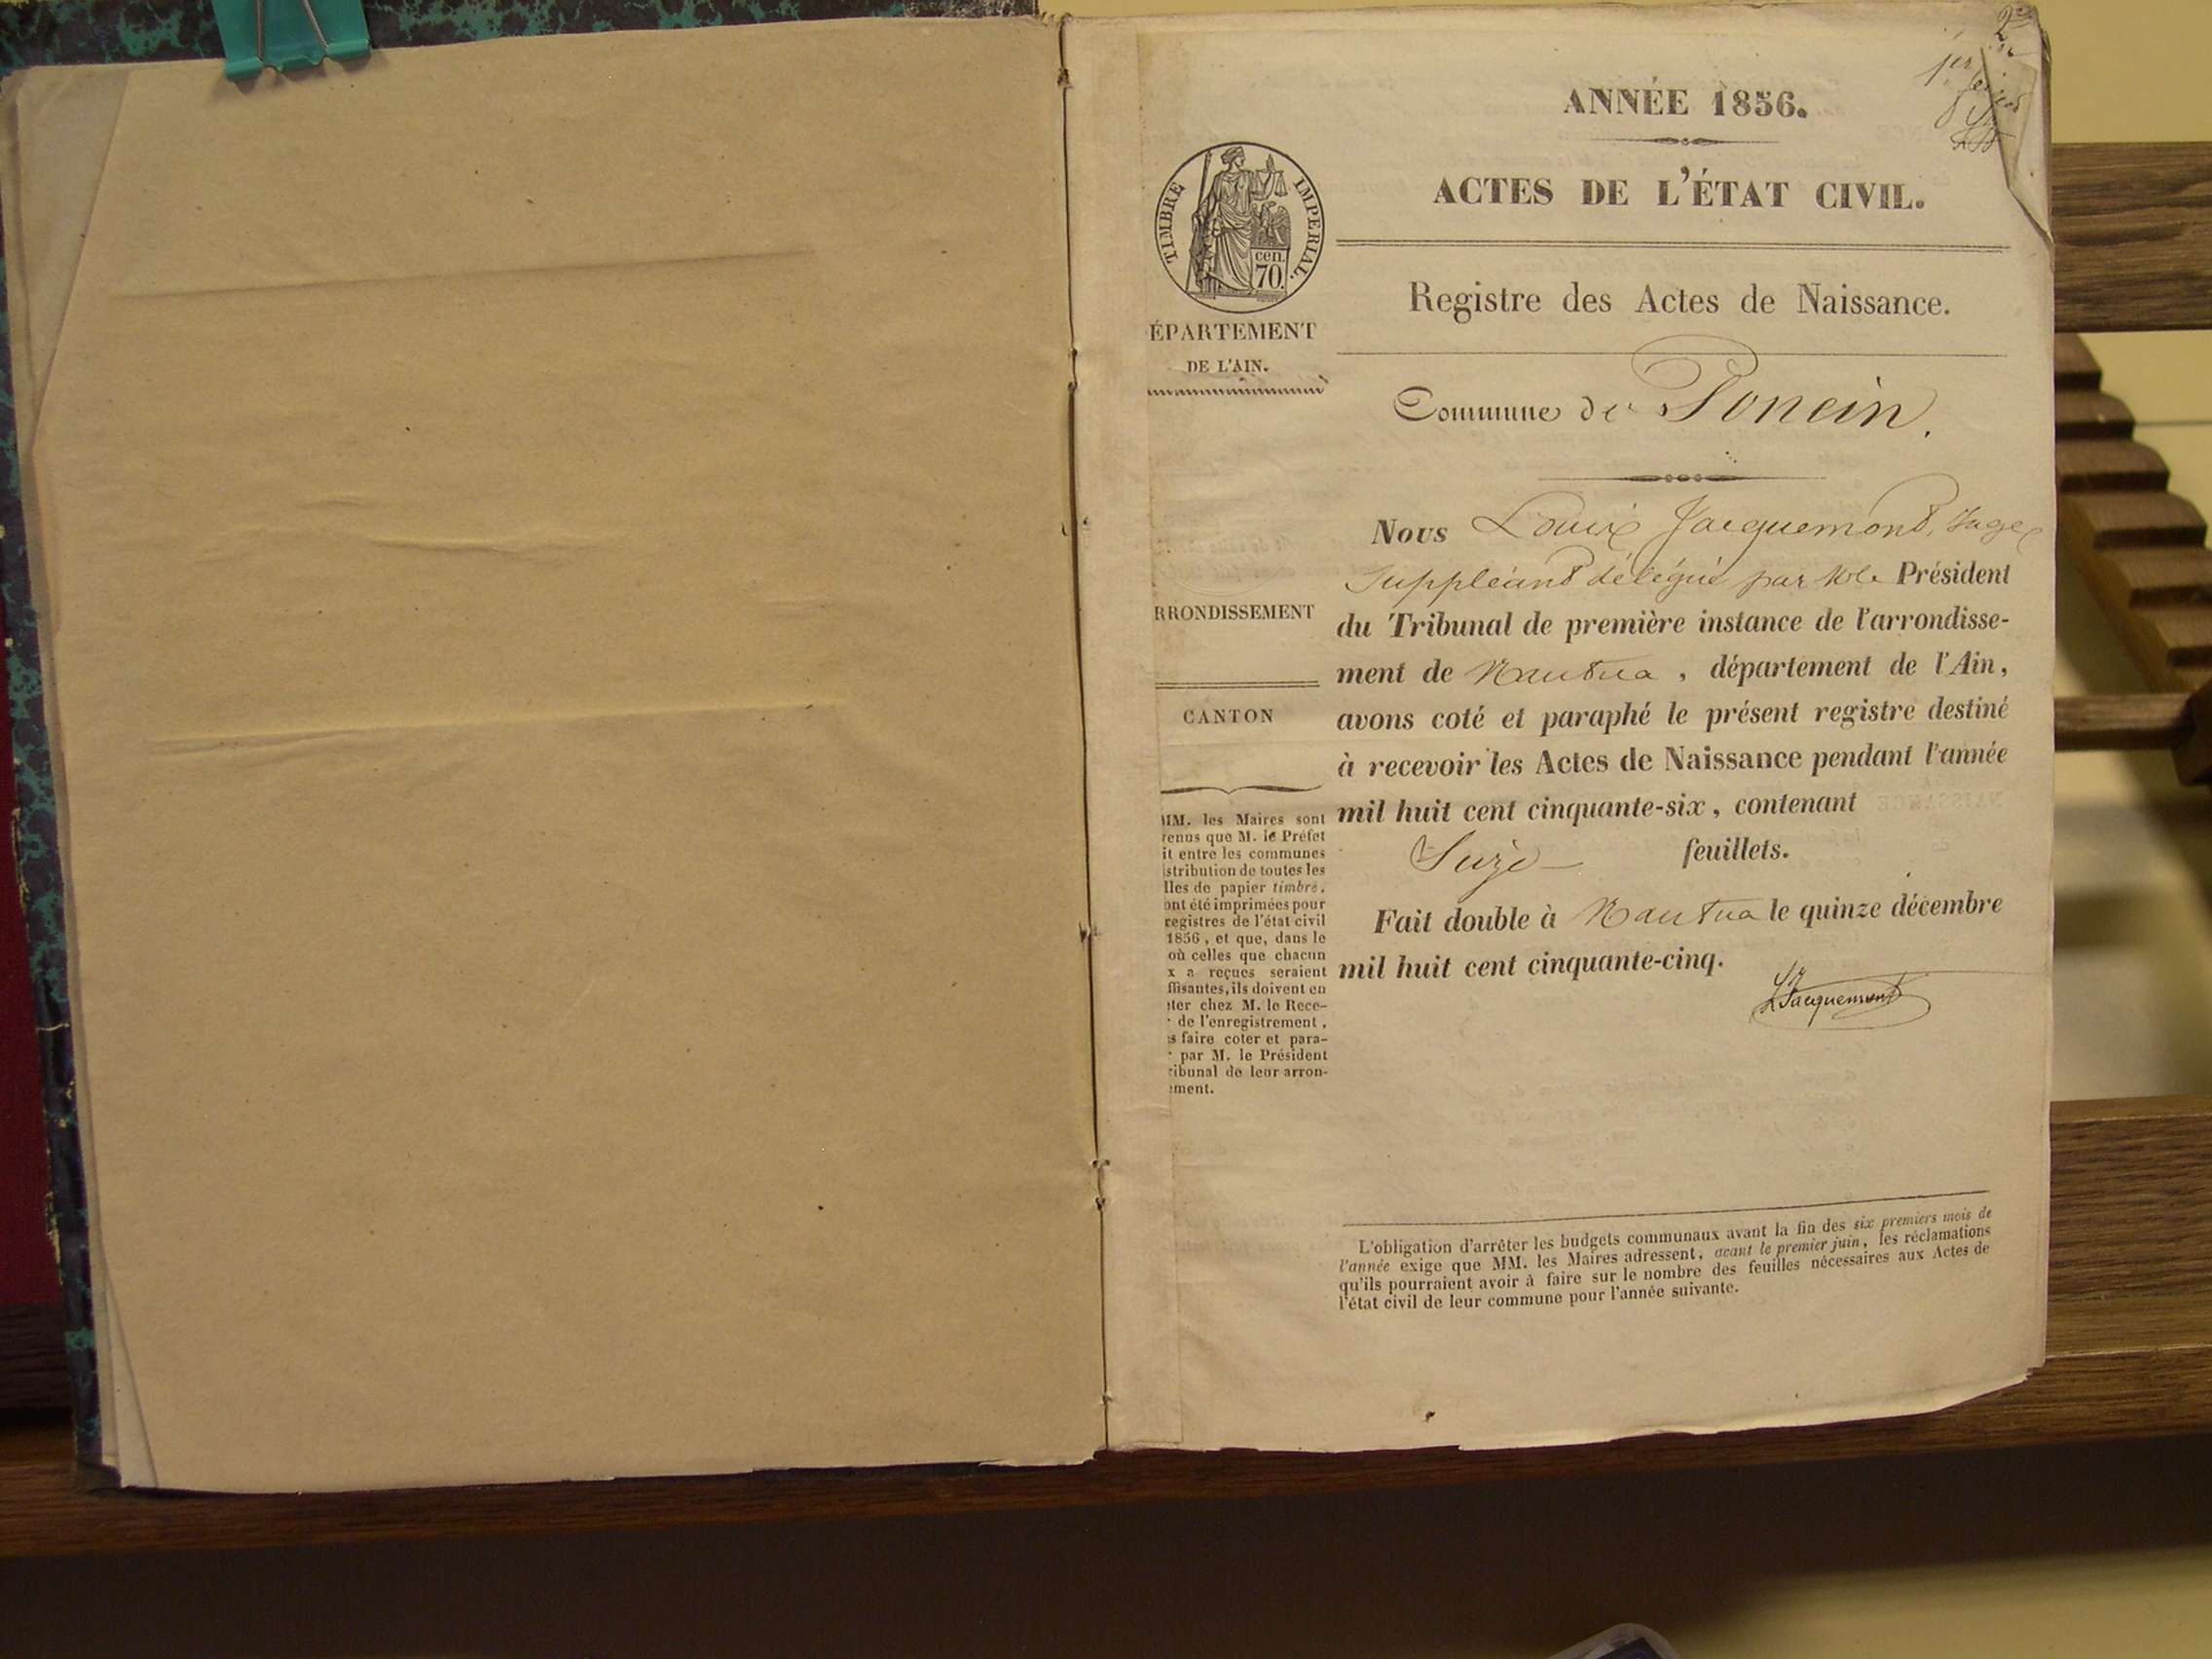 2e
1er
ANNÉE 1856.
ACTES DE L'ÉTAT CIVIL.
TIMBRE IMPERIAL.
cen.
70.
ÉPARTEMENT
DE L'AIN.
Registre des Actes de Naissance.
Commune de Poncin.
RRONDISSEMENT
CANTON
MM. les Maires sont
renus que M. le Préfet
it entre les communes
istribution de toutes les
lles de papier timbré,
ont été imprimées pour
registres de l'état civil
1856, et que, dans le
où celles que chacun
x a reçues seraient
ffisantes, ils doivent en
ter chez M. le Rece-
de l'enregistrement,
s faire coter et para-
par M. le Président
ribunal de leur arron-
ment.
Nous Louis Jacquemond, Juge
Suppléant délégué par Mr le Président
du Tribunal de première instance de l'arrondisse-
ment de Nantua, département de l'Ain,
avons coté et paraphé le présent registre destiné
à recevoir les Actes de Naissance pendant l'année
mil huit cent cinquante-six, contenant
Seize feuillets.
Fait double à Nantua le quinze décembre
mil huit cent cinquante-cinq.
L Jacquemond
L'obligation d'arrêter les budgets communaux avant la fin des six premiers mois de
l'année exige que MM. les Maires adressent, avant le premier juin, les réclamations
qu'ils pourraient avoir à faire sur le nombre des feuilles nécessaires aux Actes de
l'état civil de leur commune pour l'année suivante.